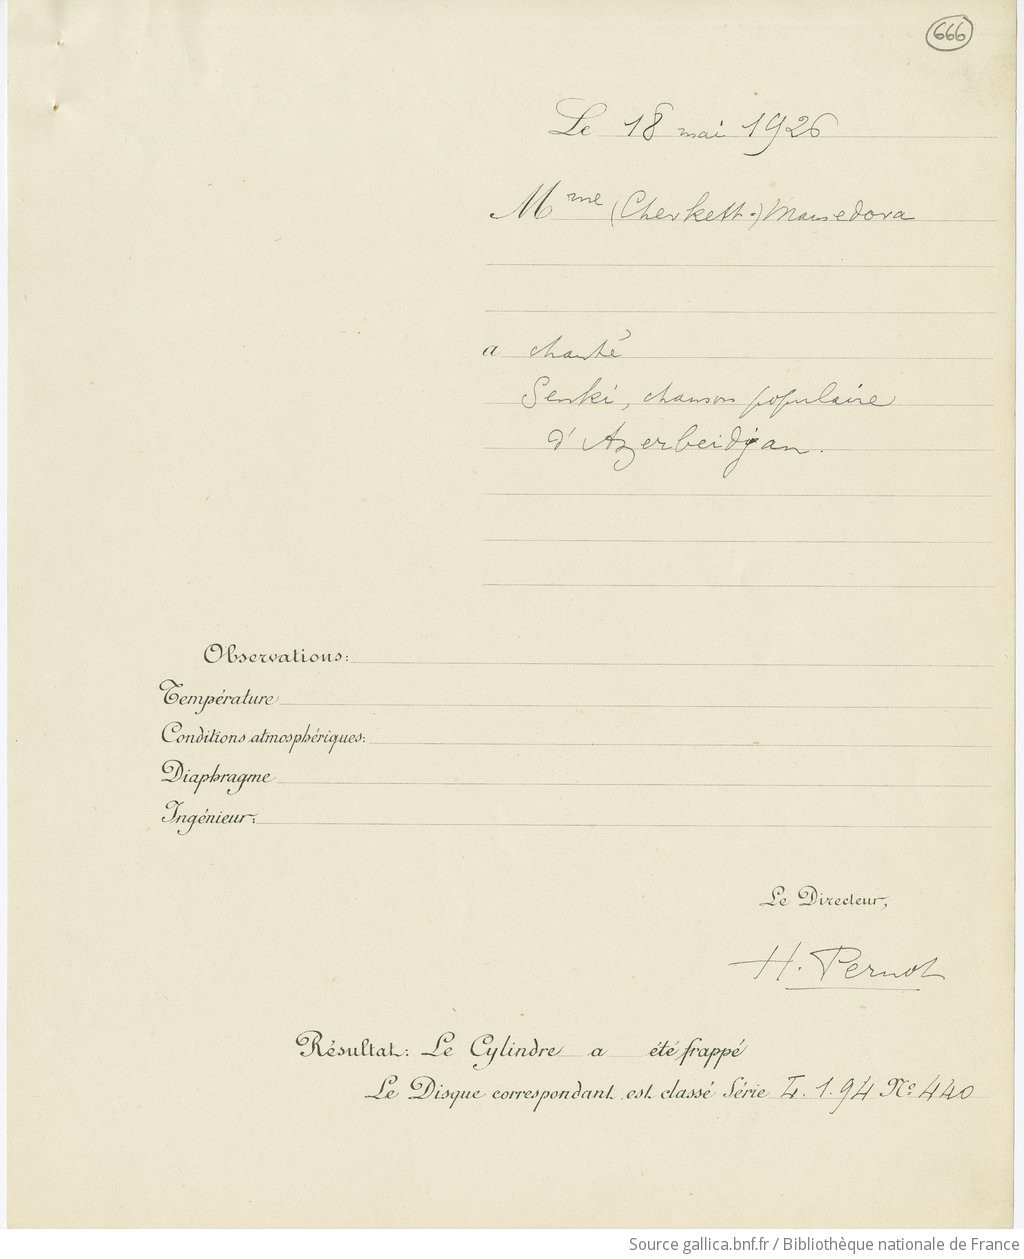 666
Le 18 mai 1926
Mme (Cherkett.) Mamedova
a chanté
Senki, chanson populaire
d'Azerbeidjan.
Observations:
Température
Conditions atmosphériques:
Diaphragme
Ingénieur:
Le Directeur,
H. Pernot
Résultat: Le Cylindre a été frappé
Le Disque correspondant est classé Série I. 1. 94 No 440
Source gallica.bnf.fr / Bibliothèque nationale de France